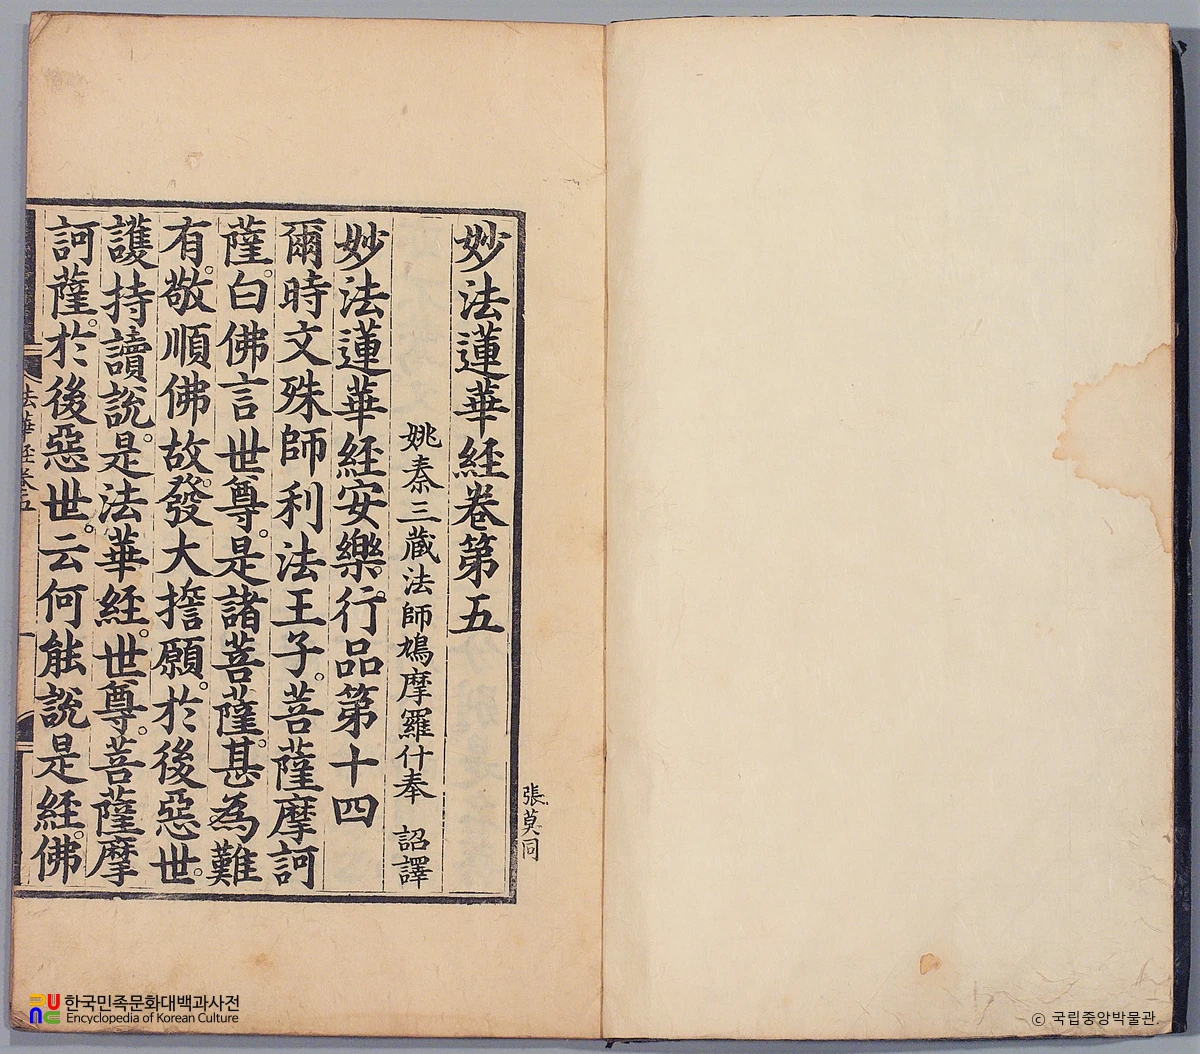 妙法蓮華経卷第五
姚秦三蔵法師鳩摩羅什奉 詔譯
妙法蓮華経安樂行品第十四
爾時文殊師利法王子。菩薩摩訶
薩。白佛言世尊。是諸菩薩。甚為難
有。敬順佛故。發大擔願。於後惡世。
護持讀說。是法華経。世尊。菩薩摩
訶薩。於後惡世。云何能說是経。佛
法華経卷五
一
張莫同
한국민족문화대백과사전
Encyclopedia of Korean Culture
ⓒ 국립중앙박물관.